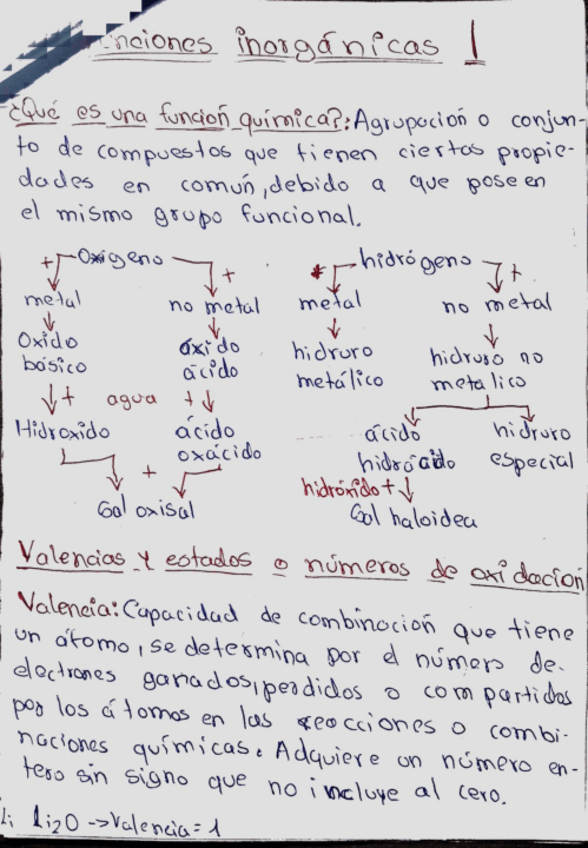 unciones inorgánicas 1
¿Qué es una función química?: Agrupación o conjun-
to de compuestos que tienen ciertas propie-
dades en común, debido a que poseen
el mismo grupo funcional.
+ Oxígeno +
metal no metal
Oxido básico
óxido ácido
+ agua +
Hidroxido
ácido oxácido
+
Sal oxisal
+ hidrógeno +
metal no metal
hidruro metálico
hidruro no metalico
ácido hidrácido
hidruro especial
hidróxido +
Sal haloidea
Valencias y estados o números de oxidación
Valencia: Capacidad de combinación que tiene
un átomo, se determina por el número de
electrones ganados, perdidos o compartidos
por los átomos en las reacciones o combi-
naciones químicas. Adquiere un número en-
tero sin signo que no incluye al cero.
Li Li2O → Valencia = 1